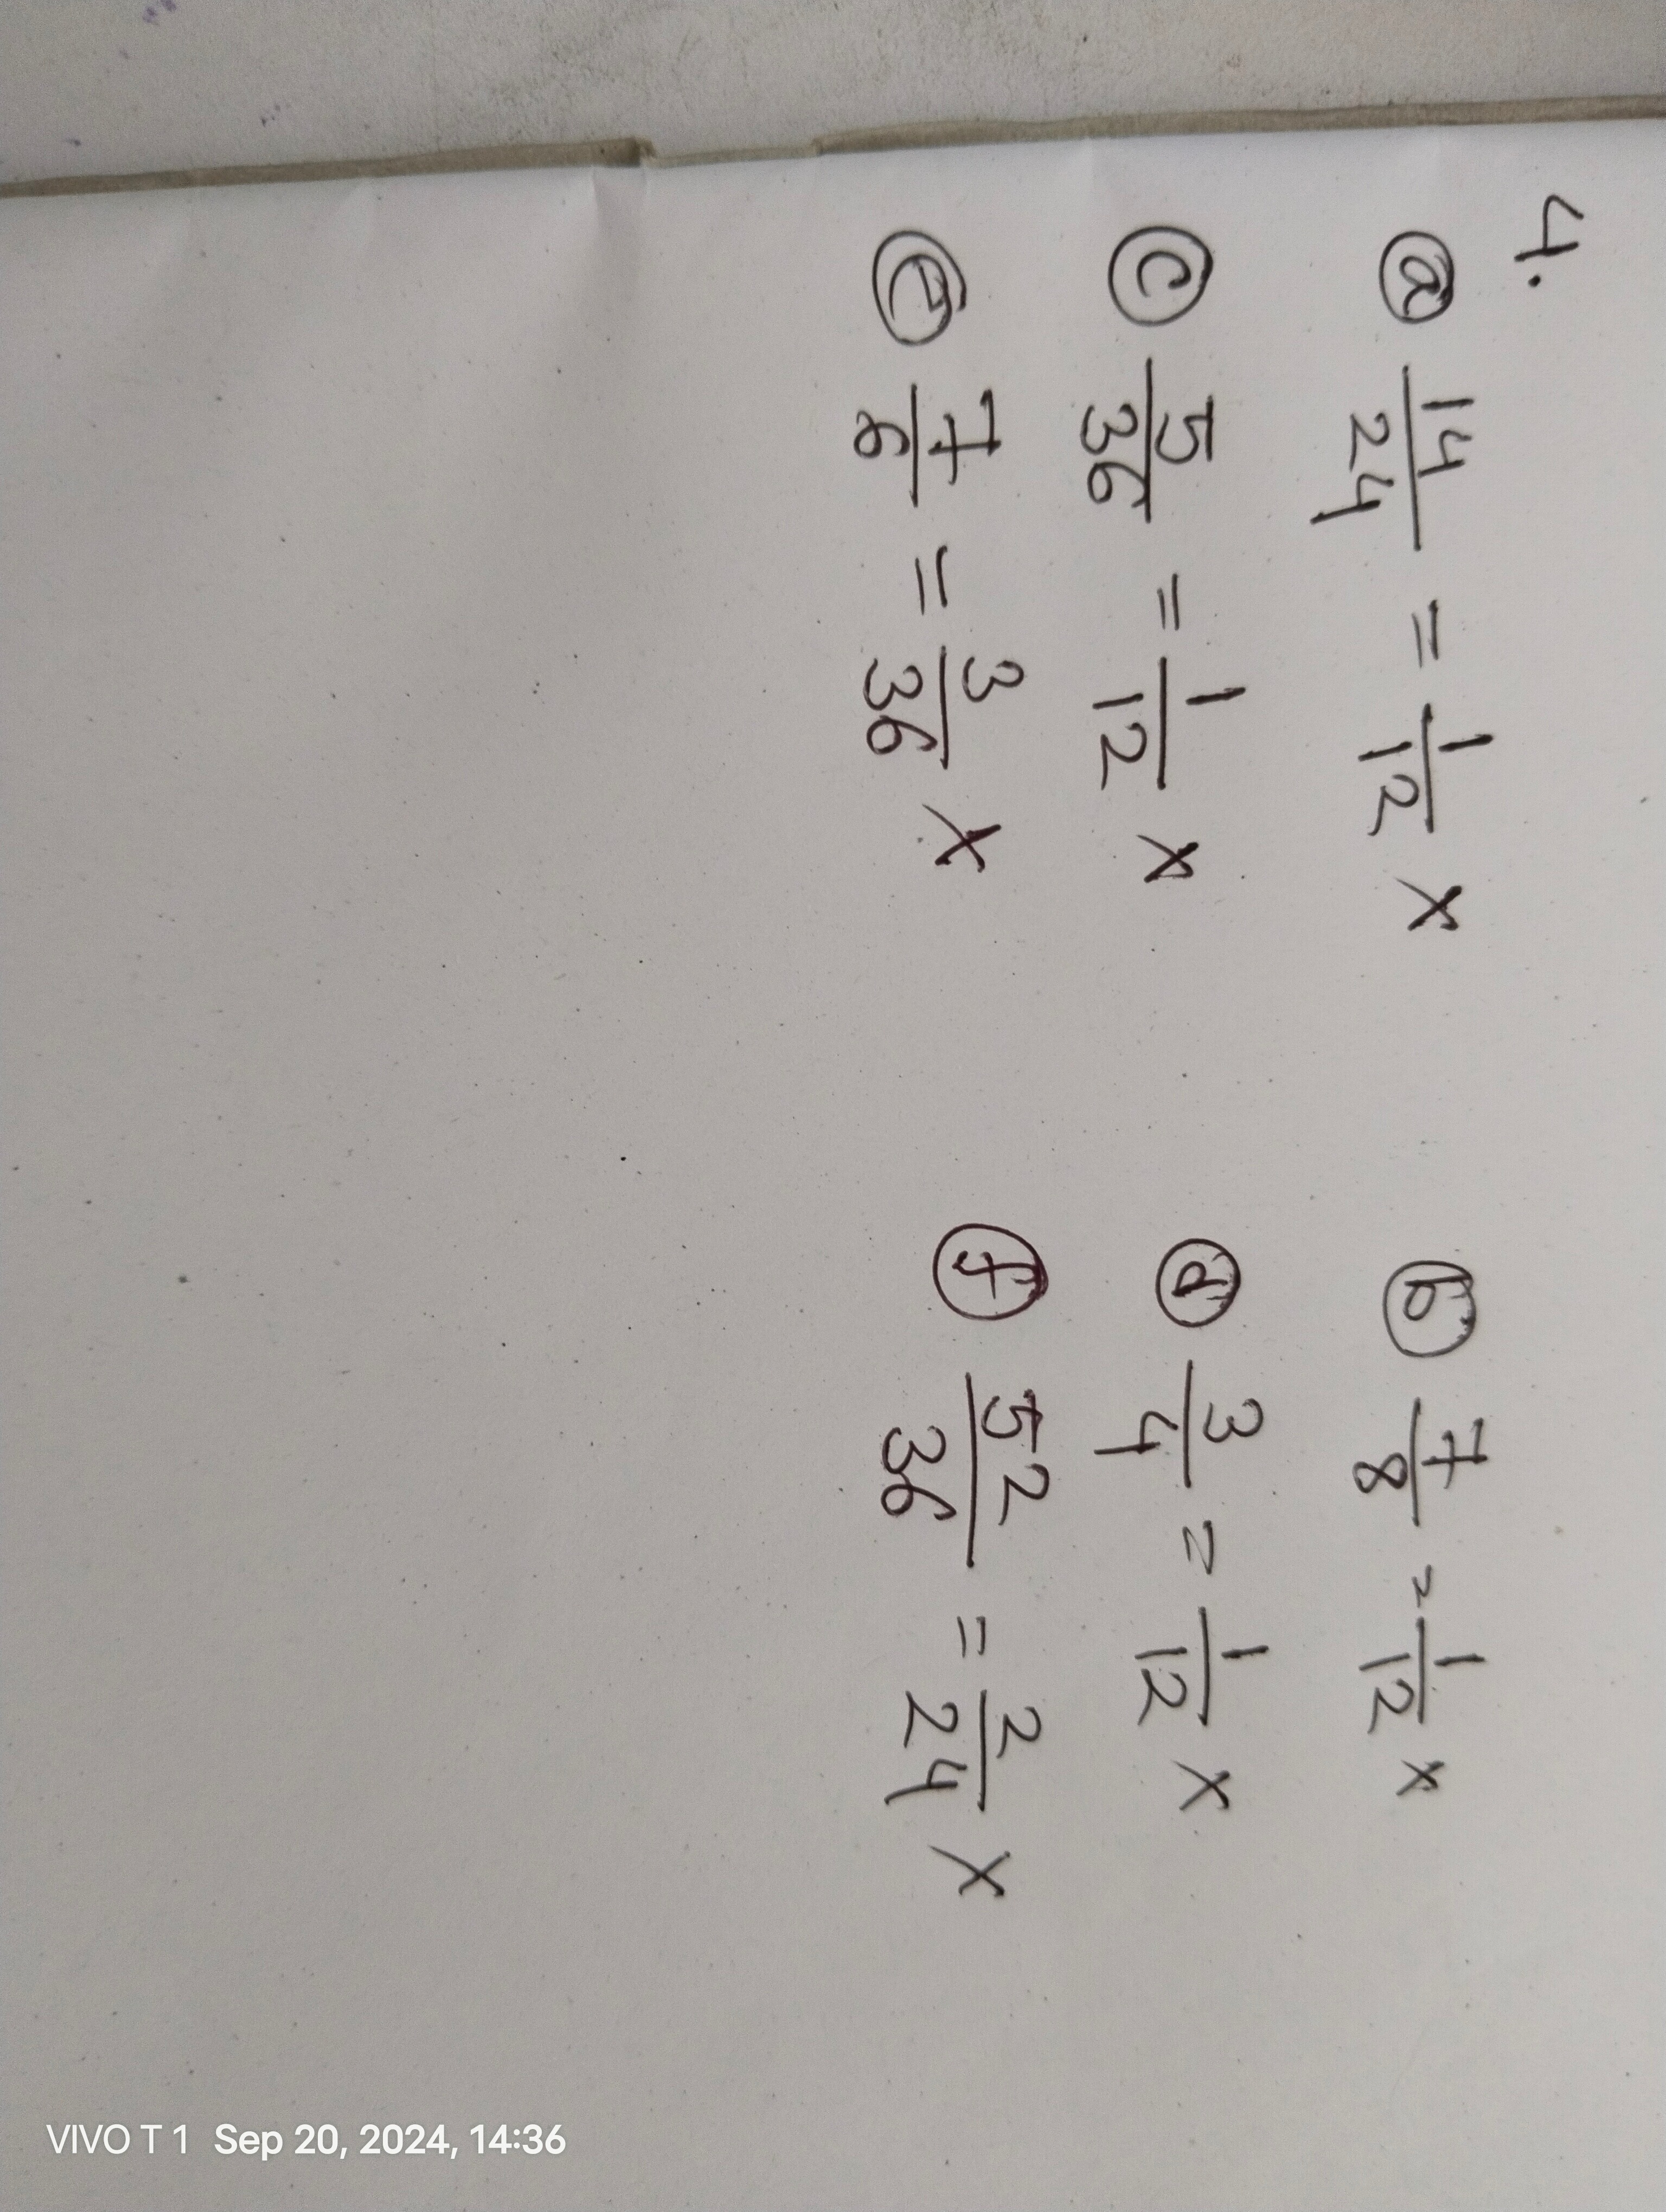 4.
ⓐ 14/24 = 1/12 x ⓑ 7/8 = 1/12 x
ⓒ 5/36 = 1/12 x ⓓ 3/4 = 1/12 x
ⓔ 7/6 = 3/36 x ⓕ 52/36 = 2/24 x
VIVO T1 Sep 20, 2024, 14:36